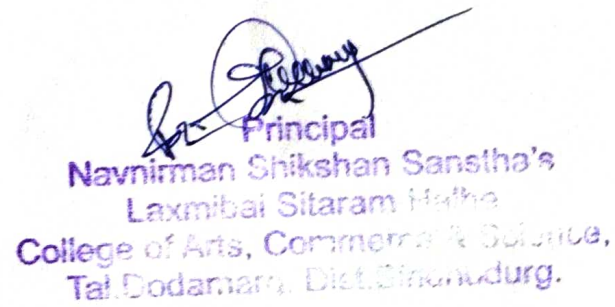 Principal
Navnirman Shikshan Sanstha's
Laxmibai Sitaram Halbe
College of Arts, Commerce & Science,
Tal.Dodamarg. Dist.Sindhudurg.